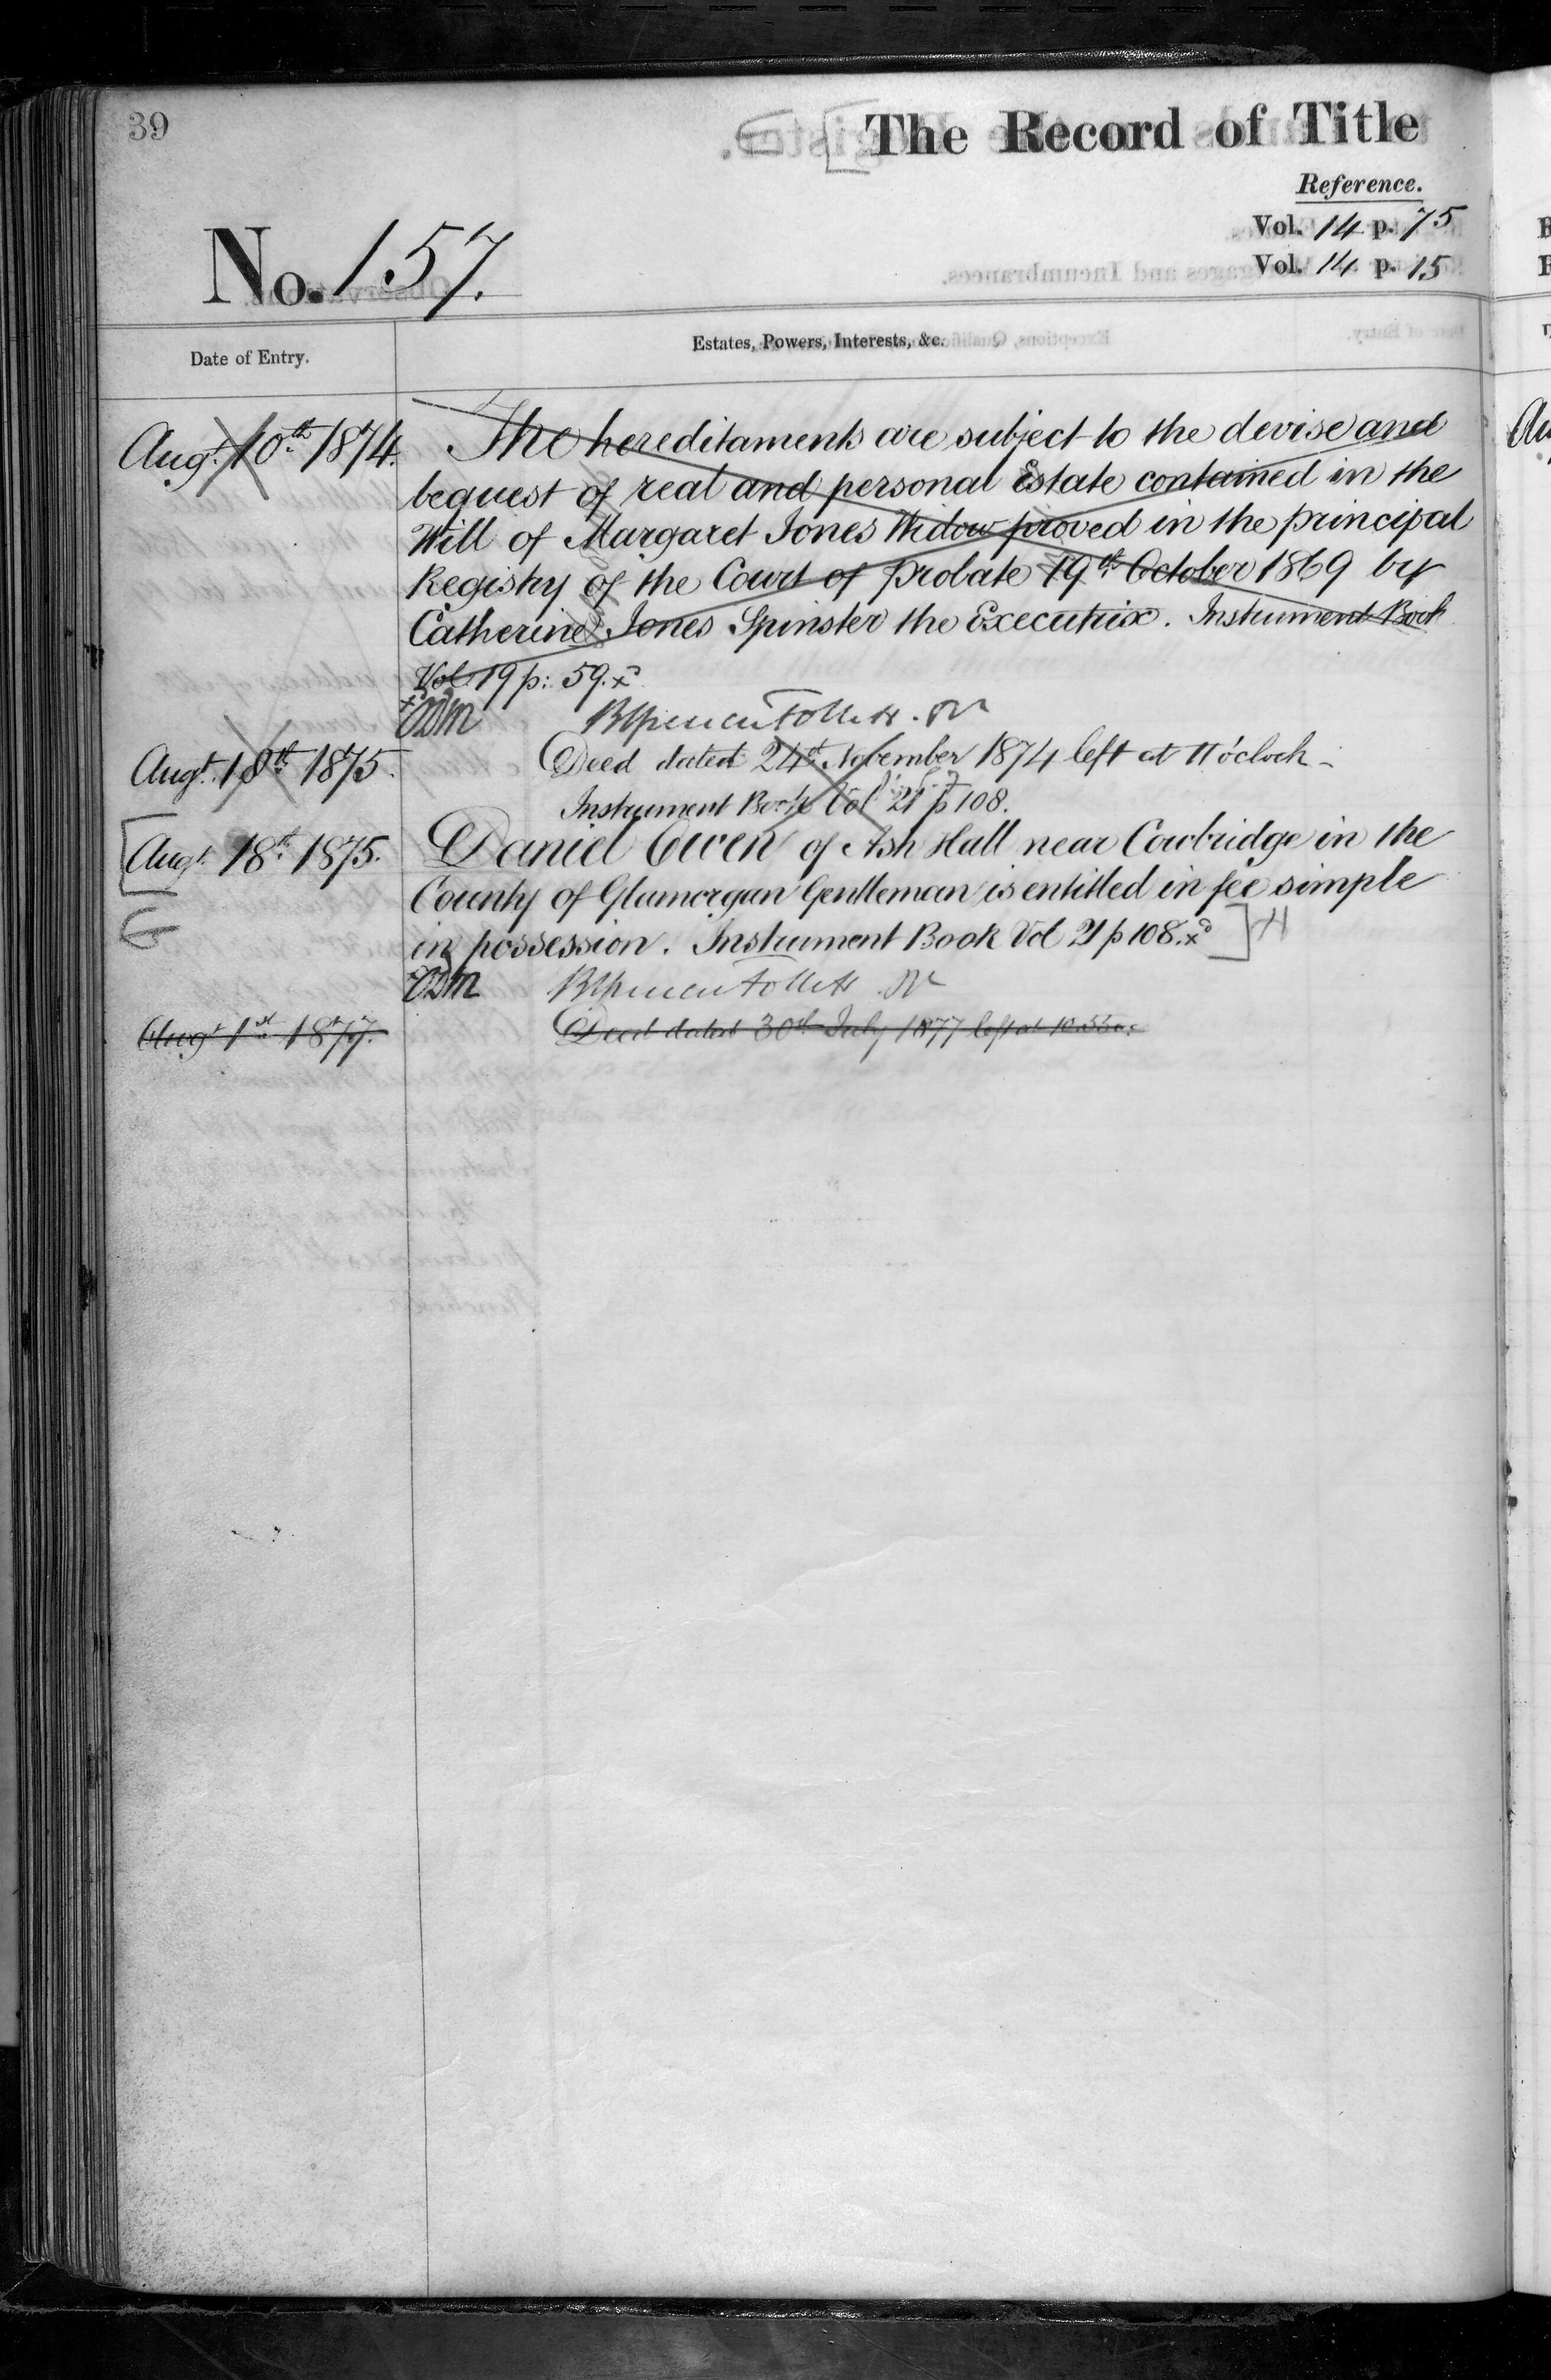 39
The Record of Title
Reference.
Vol. 14 p. 75
Vol. 14 p. 15
No. 157.
Date of Entry.
Estates, Powers, Interests, &c.
Augt. 10th 1874. The hereditaments are subject to the devise and
bequest of real and personal Estate contained in the
Will of Margaret Jones Widow proved in the principal
Registry of the Court of Probate 19th October 1869 by
Catherine Jones Spinster the Executrix. Instrument Book
Vol. 19 p: 59. xd
Brent Spencer Follett
Augt. 18th 1875. Deed dated 24th November 1874 left at 11 o'clock -
Instrument Book Vol 21 p 108.
Augt. 18th 1875. Daniel Owen of Ash Hall near Cowbridge in the
County of Glamorgan Gentleman is entitled in fee simple
in possession. Instrument Book Vol 21 p 108. xd ] H
G
Augt 1st 1877. Deed dated 30th July 1877 left at